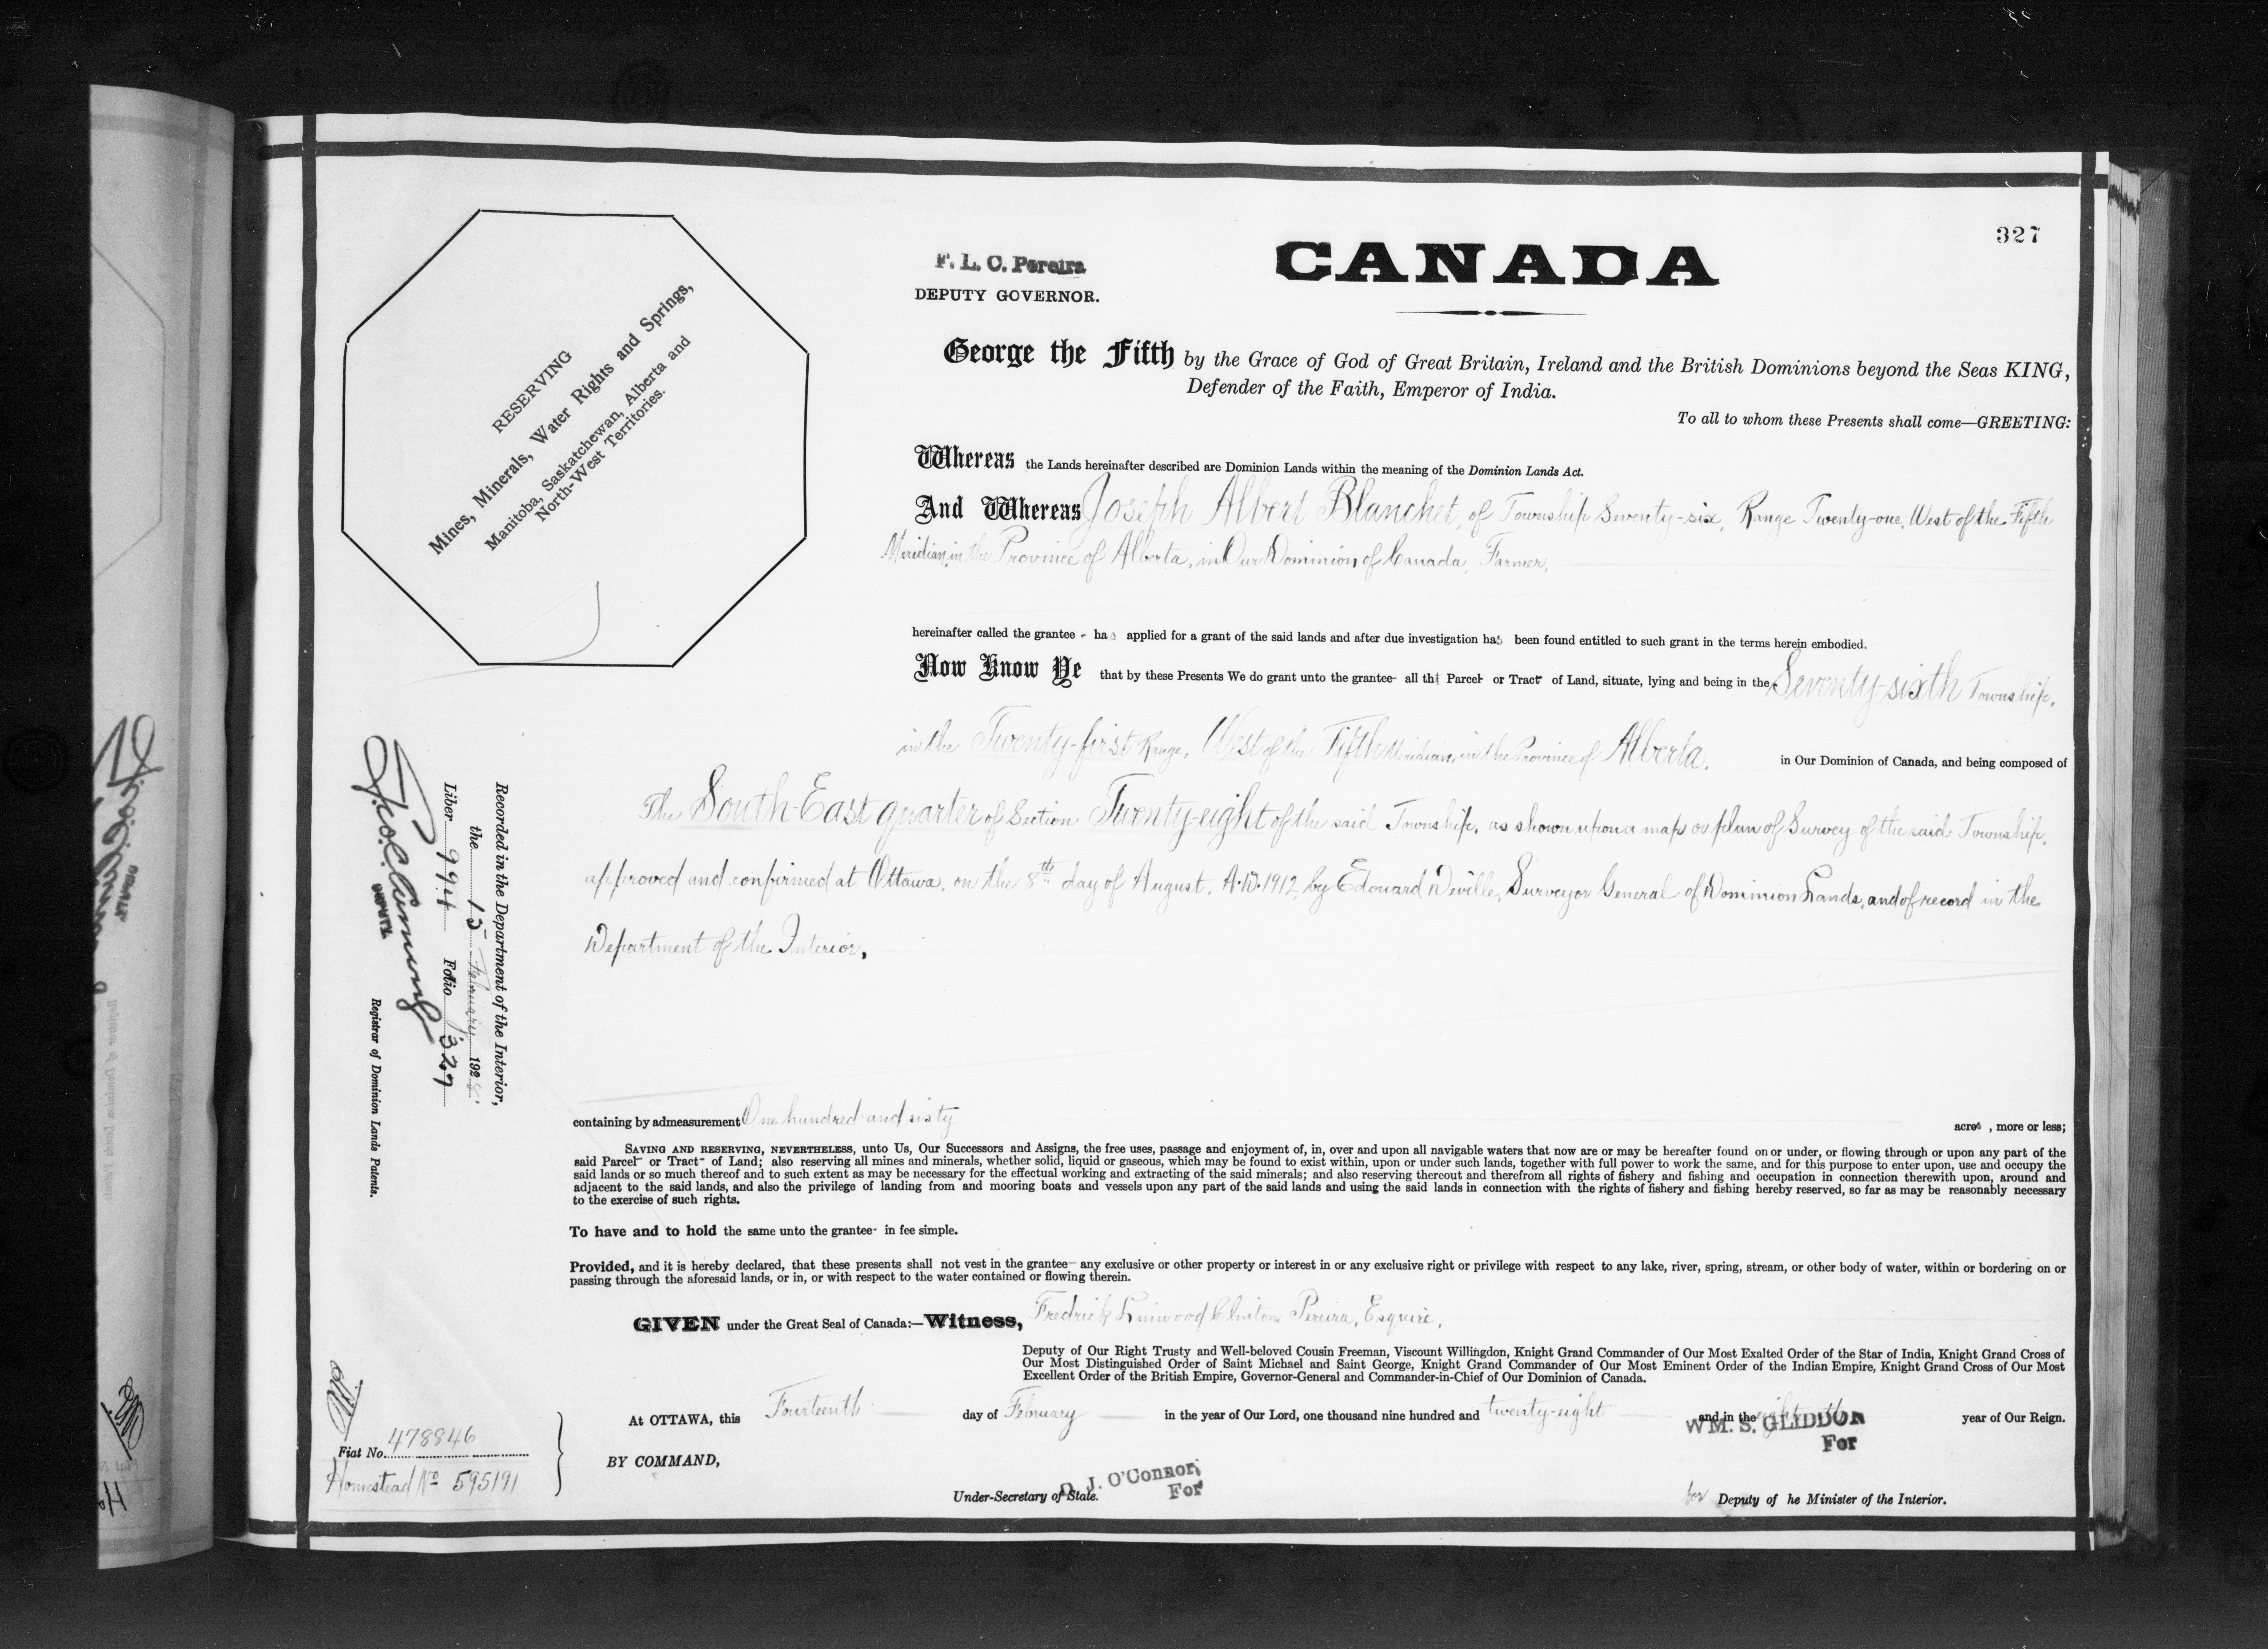 327
F. L. C. Pereira
DEPUTY GOVERNOR.
CANADA
RESERVING
Mines, Minerals, Water Rights and Springs,
Manitoba, Saskatchewan, Alberta and
North-West Territories.
George the Fifth by the Grace of God of Great Britain, Ireland and the British Dominions beyond the Seas KING,
Defender of the Faith, Emperor of India.
To all to whom these Presents shall come—GREETING:
Whereas the Lands hereinafter described are Dominion Lands within the meaning of the Dominion Lands Act.
And Whereas Joseph Albert Blanchet, of Township Seventy-six, Range Twenty-one, West of the Fifth
Meridian, in the Province of Alberta, in Our Dominion of Canada, Farmer,
hereinafter called the grantee - has applied for a grant of the said lands and after due investigation has been found entitled to such grant in the terms herein embodied.
Now Know Ye that by these Presents We do grant unto the grantee- all th Parcel- or Tract- of Land, situate, lying and being in the Seventy-sixth Township,
in the Twenty-first Range, West of the Fifth Meridian, in the Province of Alberta, in Our Dominion of Canada, and being composed of
The South-East quarter of Section Twenty-eight of the said Township, as shown upon a map or plan of Survey of the said Township,
approved and confirmed at Ottawa, on the 8th day of August, A.D. 1912, by Edouard Deville, Surveyor General of Dominion Lands, and of record in the
Department of the Interior,
Recorded in the Department of the Interior,
the 15 February 1928
Liber 994 Folio 327
DEPUTY
Registrar of Dominion Lands Patents.
containing by admeasurement One hundred and sixty acres, more or less;
SAVING AND RESERVING, NEVERTHELESS, unto Us, Our Successors and Assigns, the free uses, passage and enjoyment of, in, over and upon all navigable waters that now are or may be hereafter found on or under, or flowing through or upon any part of the
said Parcel- or Tract- of Land; also reserving all mines and minerals, whether solid, liquid or gaseous, which may be found to exist within, upon or under such lands, together with full power to work the same, and for this purpose to enter upon, use and occupy the
said lands or so much thereof and to such extent as may be necessary for the effectual working and extracting of the said minerals; and also reserving thereout and therefrom all rights of fishery and fishing and occupation in connection therewith upon, around and
adjacent to the said lands, and also the privilege of landing from and mooring boats and vessels upon any part of the said lands and using the said lands in connection with the rights of fishery and fishing hereby reserved, so far as may be reasonably necessary
to the exercise of such rights.
To have and to hold the same unto the grantee- in fee simple.
Provided, and it is hereby declared, that these presents shall not vest in the grantee- any exclusive or other property or interest in or any exclusive right or privilege with respect to any lake, river, spring, stream, or other body of water, within or bordering on or
passing through the aforesaid lands, or in, or with respect to the water contained or flowing therein.
GIVEN under the Great Seal of Canada:—Witness, Fredrick Linwood Clinton Pereira, Esquire,
Deputy of Our Right Trusty and Well-beloved Cousin Freeman, Viscount Willingdon, Knight Grand Commander of Our Most Exalted Order of the Star of India, Knight Grand Cross of
Our Most Distinguished Order of Saint Michael and Saint George, Knight Grand Commander of Our Most Eminent Order of the Indian Empire, Knight Grand Cross of Our Most
Excellent Order of the British Empire, Governor-General and Commander-in-Chief of Our Dominion of Canada.
At OTTAWA, this Fourteenth day of February in the year of Our Lord, one thousand nine hundred and twenty-eight and in the year of Our Reign.
WM. S. GLIDDON
For
BY COMMAND,
Fiat No. 478846
Homestead No 595191
J. O'Connor,
For
Under-Secretary of State.
for Deputy of he Minister of the Interior.